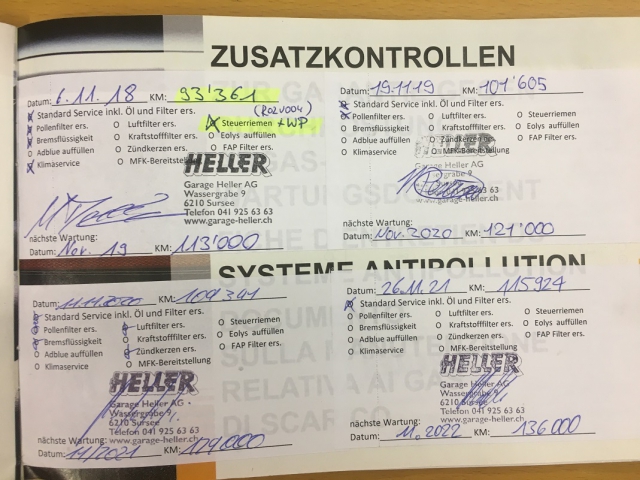 ZUSATZKONTROLLEN
Datum: 6.11.18 KM: 93'361
Standard Service inkl. Öl und Filter ers. (ROZV004)
Pollenfilter ers. Luftfilter ers. Steuerriemen + WP
Bremsflüssigkeit Kraftstofffilter ers. Eolys auffüllen
Adblue auffüllen Zündkerzen ers. FAP Filter ers.
Klimaservice MFK-Bereitstellung
HELLER
Garage Heller AG
Wassergrabe 9
6210 Sursee
Telefon 041 925 63 63
www.garage-heller.ch
nächste Wartung:
Datum: Nov. 19 KM: 113'000
Datum: 19.11.19 KM: 101'605
Standard Service inkl. Öl und Filter ers.
Pollenfilter ers. Luftfilter ers. Steuerriemen
Bremsflüssigkeit Kraftstofffilter ers. Eolys auffüllen
Adblue auffüllen Zündkerzen ers. FAP Filter ers.
Klimaservice MFK-Bereitstellung
HELLER
Garage Heller AG
Wassergrabe 9
6210 Sursee
Telefon 041 925 63 63
www.garage-heller.ch
nächste Wartung:
Datum: Nov. 2020 KM: 121'000
SYSTEME ANTIPOLLUTION
Datum: 11.11.2020 KM: 109'341
Standard Service inkl. Öl und Filter ers.
Pollenfilter ers. Luftfilter ers. Steuerriemen
Bremsflüssigkeit Kraftstofffilter ers. Eolys auffüllen
Adblue auffüllen Zündkerzen ers. FAP Filter ers.
Klimaservice MFK-Bereitstellung
HELLER
Garage Heller AG
Wassergrabe 9
6210 Sursee
Telefon 041 925 63 63
www.garage-heller.ch
nächste Wartung:
Datum: 11/2021 KM:
Datum: 26.11.21 KM: 115'924
Standard Service inkl. Öl und Filter ers.
Pollenfilter ers. Luftfilter ers. Steuerriemen
Bremsflüssigkeit Kraftstofffilter ers. Eolys auffüllen
Adblue auffüllen Zündkerzen ers. FAP Filter ers.
Klimaservice MFK-Bereitstellung
HELLER
Garage Heller AG
Wassergrabe 9
6210 Sursee
Telefon 041 925 63 63
www.garage-heller.ch
nächste Wartung:
Datum: 11.2022 KM: 136'000